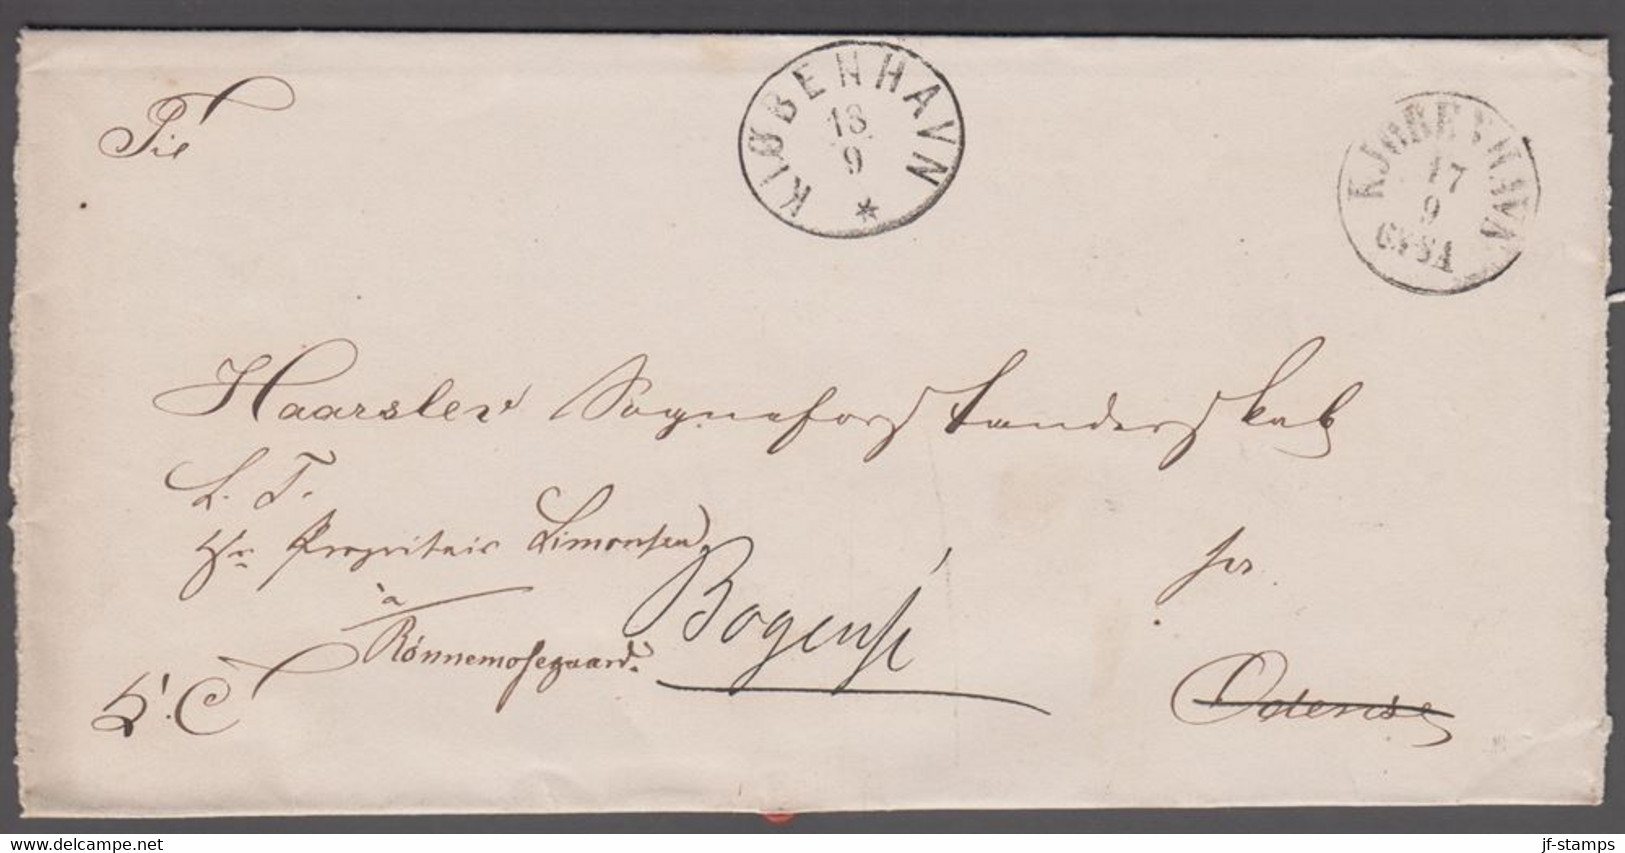 Til
KIØBENHAVN
18
9
KJØBENHAVN
17
9
Haarslev Sogneforstanderskab
S. T.
Hr Propritair Simonsen
à
Rønnemosegaard.
pr
Bogense
Odense
delcampe.net
jf-stamps